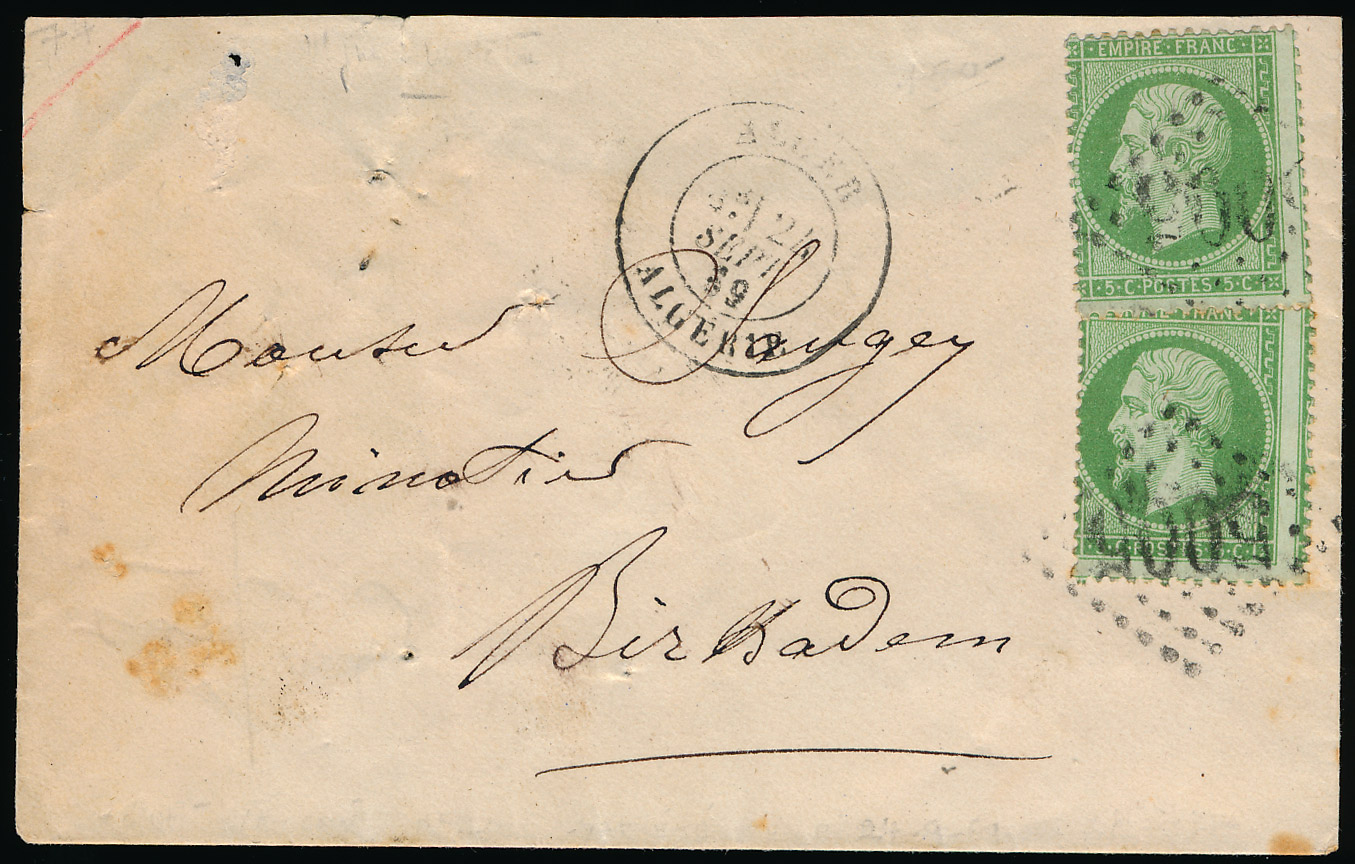 EMPIRE·FRANC·
·5·C·POSTES·5·C·
ALGER
24
SEPT
69
ALGERIE
Monsieur Saugey
minotier
Birkadem
5005